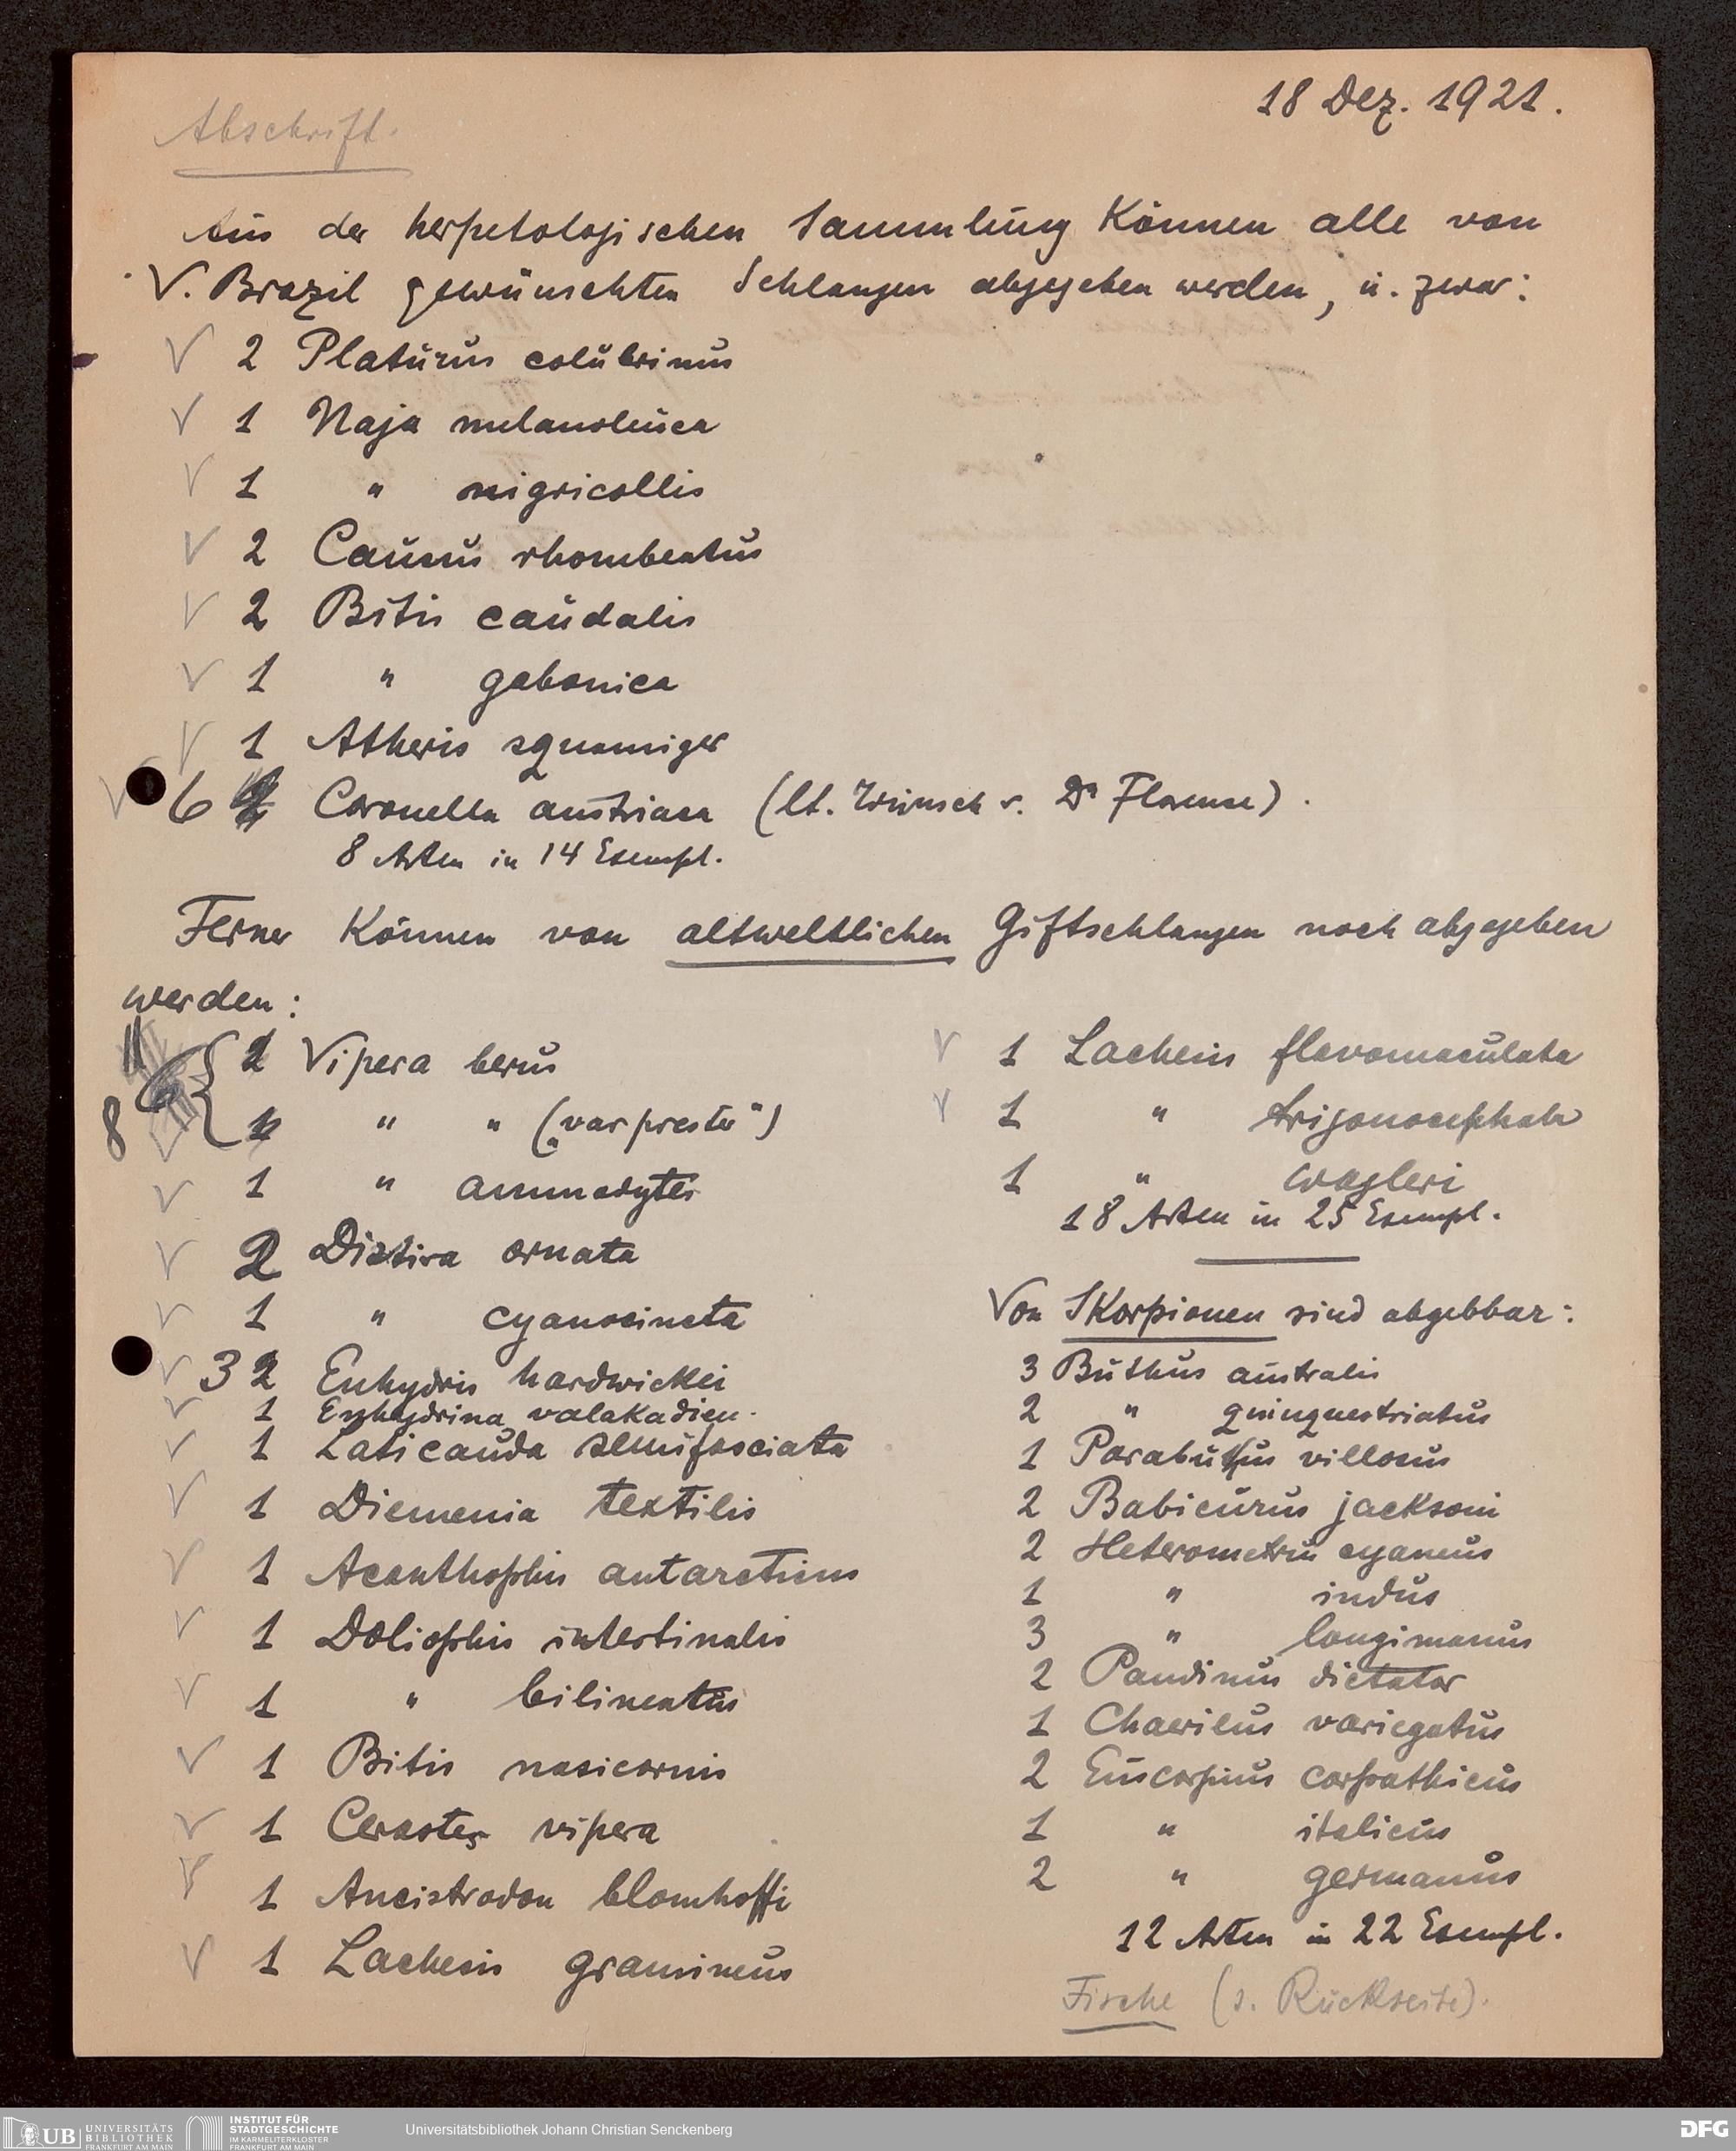 18 Dez. 1921.
Abschrift.
Aus der herpetologischen Sammlung können alle von
V. Brazil gewünschten Schlangen abgegeben werden, u. zwar:
√ 2 Platurus colubrinus
√ 1 Naja melanoleuca
√ 1 " nigricollis
√ 2 Causus rhombeatus
√ 2 Bitis caudalis
√ 1 " gabonica
√ 1 Atheris squamiger
√ 6 Coronella austriaca (lt. Wunsch v. Dr
8 Arten in 14 Exempl.
Ferner können von altweltlichen Giftschlangen noch abgegeben
werden:
11
6 { 2 Vipera berus
8 1 " " („var prester")
√ 1 " ammodytes
√ 2 Distira ornata
√ 1 " cyanocincta
√ 3 2 Enhydris hardwickei
√ 1 Enhydrina valakadien.
√ 1 Laticauda semifasciata
√ 1 Diemenia textilis
√ 1 Acanthophis antarcticus
√ 1 Doliophis intestinalis
√ 1 " bilineatus
√ 1 Bitis nasicornis
√ 1 Cerastes vipera
√ 1 Ancistrodon blomhoffi
√ 1 Lachesis gramineus
√ 1 Lachesis flavomaculata
√ 1 " trigonocephala
1 " wagleri
18 Arten in 25 Exempl.
Von Skorpionen sind abgebbar:
3 Buthus australis
2 " quinquestriatus
1 Parabuthus villosus
2 Babicurus jacksoni
2 Heterometrus cyaneus
1 " indus
3 " longimanus
2 Pandinus dictator
1 Chaerilus variegatus
2 Euscorpius carpathicus
1 " italicus
2 " germanus
12 Arten in 22 Exempl.
Fische (s. Rückseite).
UB UNIVERSITÄTS
BIBLIOTHEK
FRANKFURT AM MAIN
INSTITUT FÜR
STADTGESCHICHTE
IM KARMELITERKLOSTER
FRANKFURT AM MAIN
Universitätsbibliothek Johann Christian Senckenberg
DFG